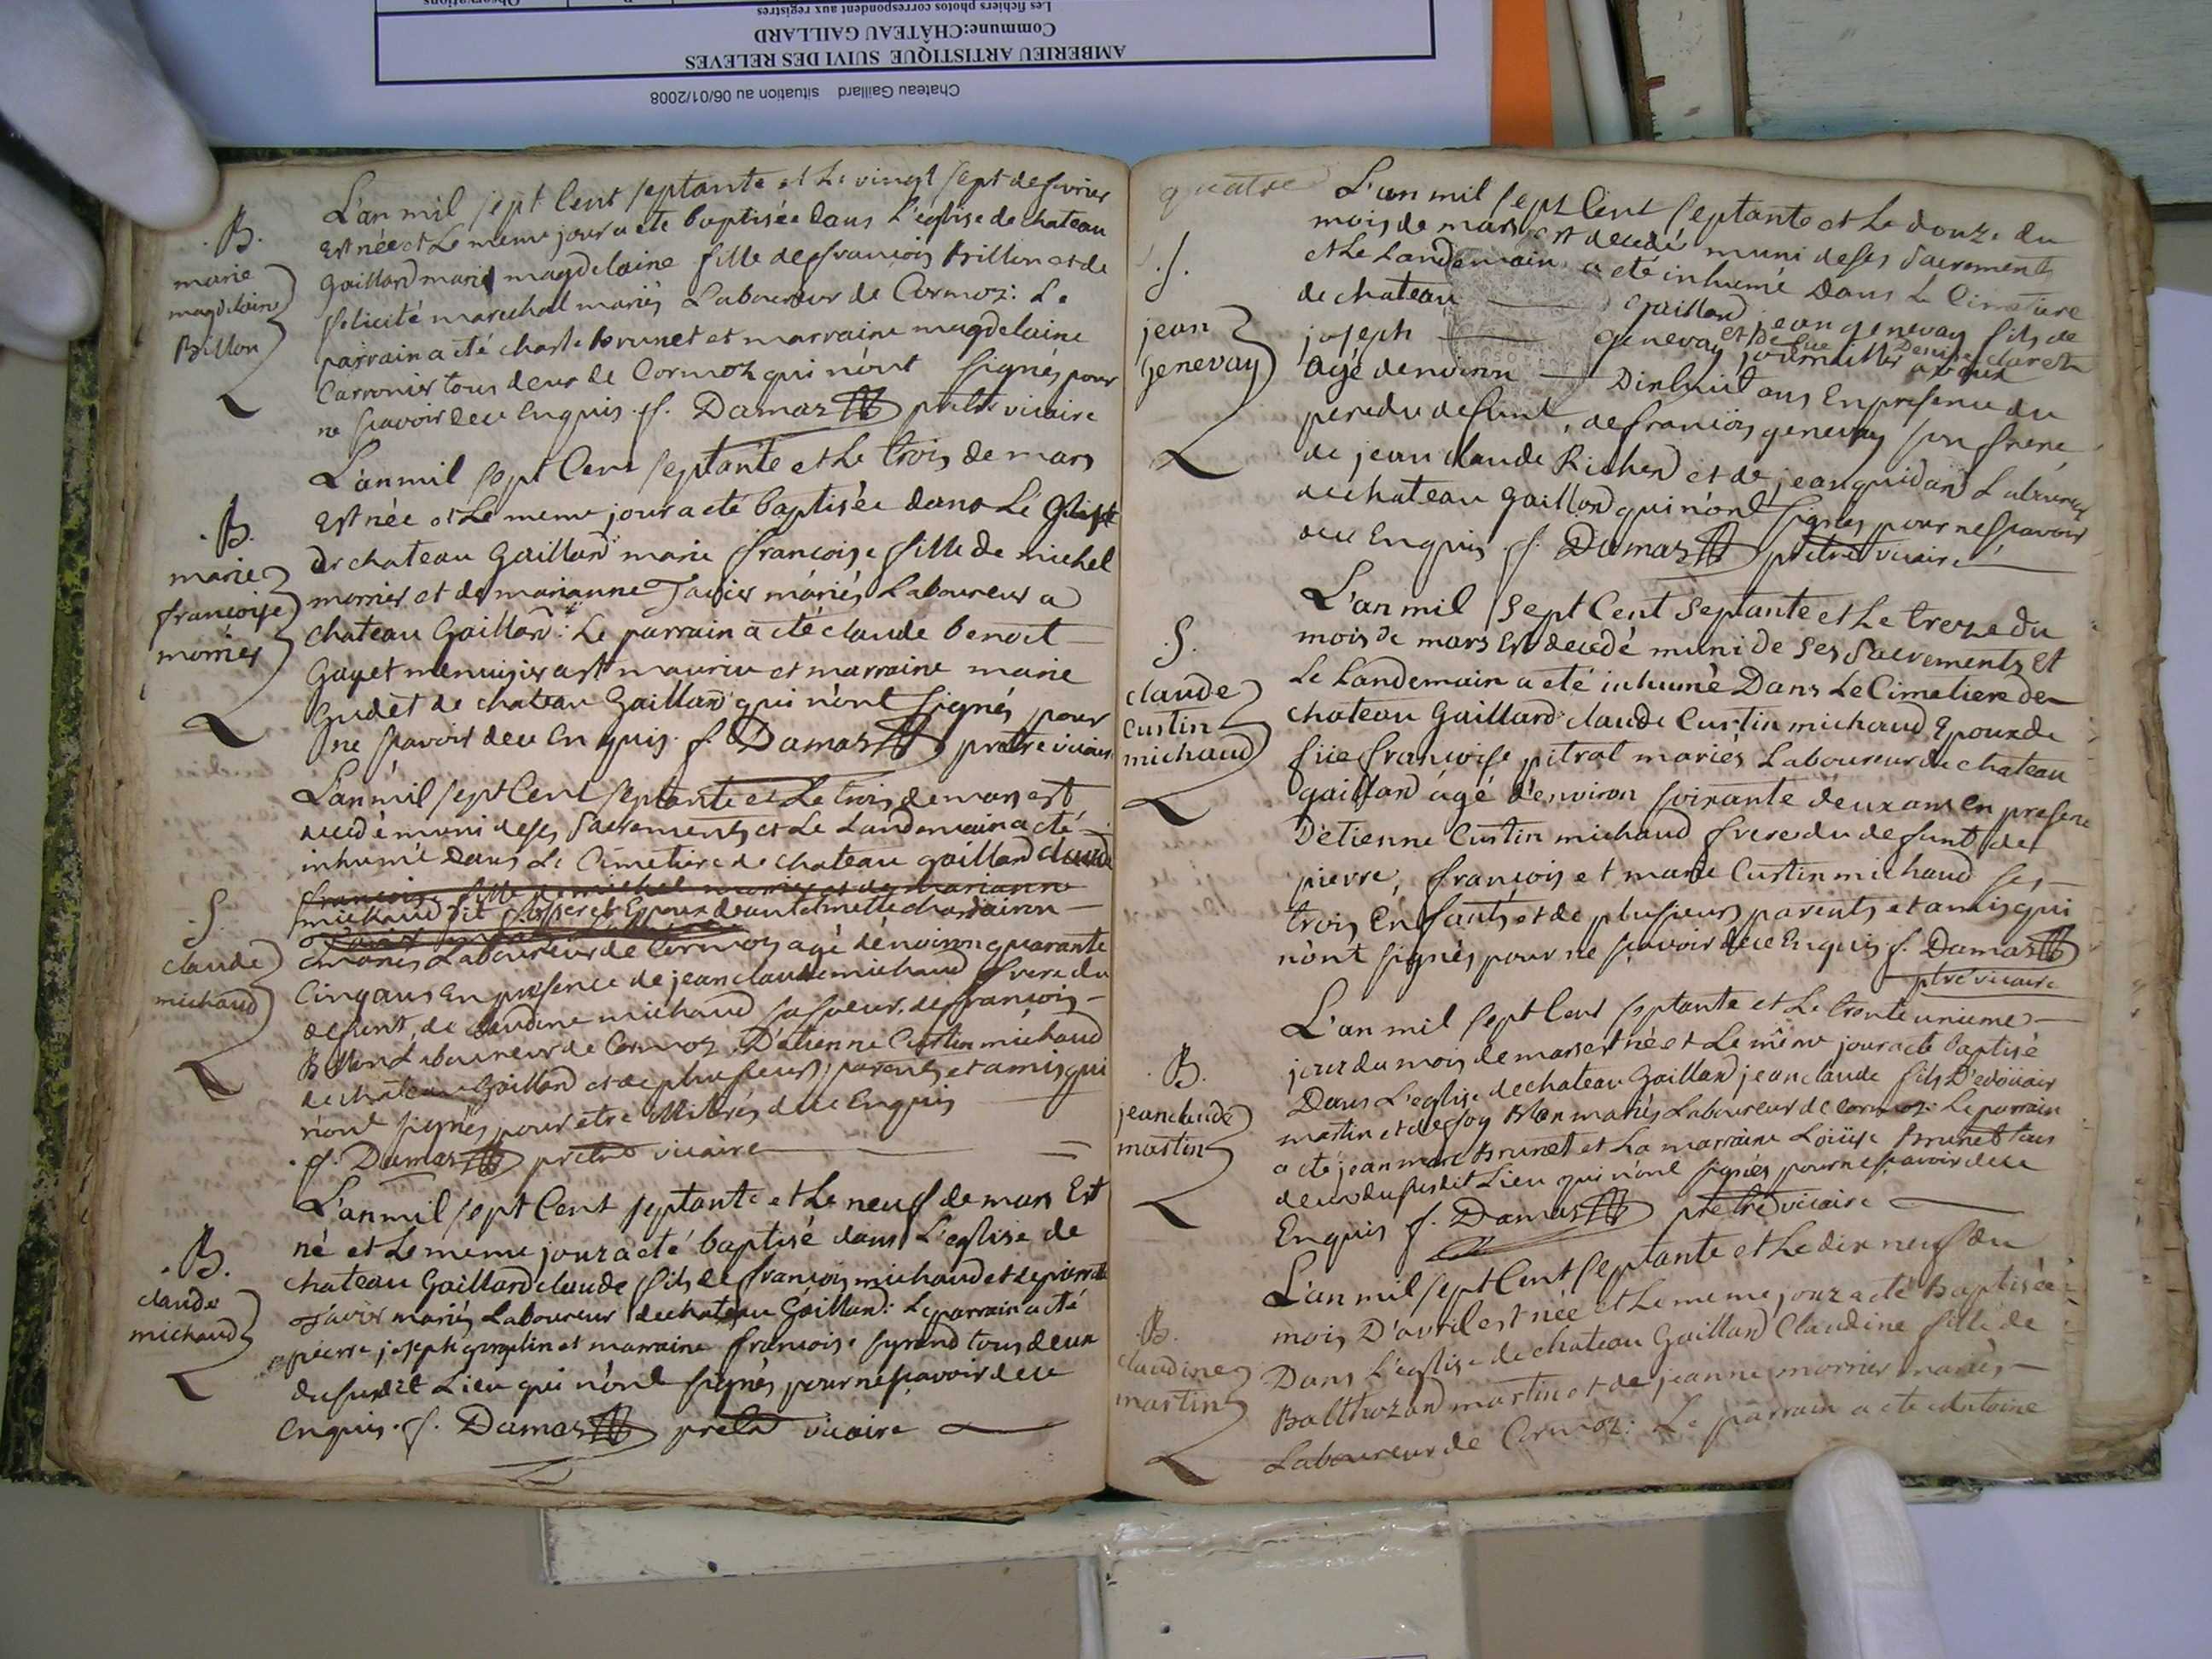 Chateau Gaillard situation au 06/01/2008
AMBERIEU ARTISTIQUE SUIVI DES RELEVES
Commune:CHÂTEAU GAILLARD
Les fichiers photos correspondent aux registres
Observations
.B.
marie
magdelaine
Billon
L'an mil sept Cent septante et Le vingt sept defevrier
Est née et Le meme jour a eté baptisée Dans L'église de chateau
Gaillard marie magdelaine fille defrancois Billon et de
felicité marechal mariés Laboureur de Cormoz: Le
parrain a été charle brunet et marraine magdelaine
Carronier tous deux de Cormoz qui n'ont signés pour
ne sçavoir dece Enquis. f. Damaz prètre vicaire
.B.
marie
francoise
morrier
L'an mil sept Cent septante et Le trois de mars
est née et Le meme jour a eté baptisée dans Lé Glise
de chateau Gaillard marie francoise fille de michel
morrier et de marianne Tavier mariés Laboureur a
chateau Gaillard: Le parrain a eté claude benoit
Gayet menuisier a st maurice et marraine marie
Gudet de chateau Gaillard qui n'ont signés pour
ne sçavoir dece Enquis. f. Damaz pretre vicaire
.S.
claude
michaud
L'an mil sept Cent septante et Le trois de mars est
decedé muni deses Sacrements et Le Landemain a eté
inhumé Dans Le Cimetiere de chateau gaillard claude
francoise fille de michel morrier et de marianne
michaud Epoux deantelmette
mariés Laboureur de Cormoz agé dénviron quarante
Cinq ans En présence de jean claude michaud frere du
defunt, de claudine michaud sa soeur, de françois
Billon Laboureur de Cormoz D'étienne Curtin michaud
de château Gaillard et de plusieurs parents et amis qui
n'ont signés pour etre illitérés dece Enquis
f. Damaz prètre vicaire
.B.
claude
michaud
L'an mil sept Cent septante et Le neuf de mars Est
né et Le meme jour a eté baptisé dans L'eglise de
chateau Gaillard claude fils de françois michaud et de pierrette
Tavier mariés Laboureur de chateau Gaillard: Le parrain a eté
pierre joseph et marraine francoise tous deux
dususdit Lieu qui n'ont signés pour ne sçavoir dece
Enquis. f. Damaz prètre vicaire
quatre
.S.
jean
Genevay
L'an mil sept Cent septante et Le douze du
mois de mars est decedé muni deses Sacrements
et Le Landemain a eté inhumé Dans Le Cimetiere
de chateau Gaillard jean genevay fils de
joseph genevay journallier et de Denise claret
Agé denviron Dixhuit ans En presence du
pere du defunt, de françois genevay son frere,
de jean claude Richerd et de jean guidard Laboureur
de chateau Gaillard qui n'ont signés pour ne sçavoir
dece Enquis f. Damaz prètre vicaire
.S.
claude
Curtin
michaud
L'an mil Sept Cent Septante et Le treze du
mois de mars Est decedé muni de Ses Sacrements Et
Le Landemain a eté inhumé Dans Le Cimetiere de
chateau Gaillard claude Curtin michaud Epoux de
françoise pitrat mariés Laboureur de chateau
gaillard âgé d'environ soixante deux ans En presence
D'étienne Curtin michaud frere du defunt, de
pierre, françois et marie Curtin michaud ses
trois Enfants et de plusieurs parents et amis qui
n'ont signés pour ne sçavoir dece Enquis f. Damaz
ptre vicaire
.B.
jean claude
martin
L'an mil sept Cent septante et Le trente unieme
jour du mois de mars est né et Le même jour a eté baptisé
Dans L'eglise de chateau Gaillard jean claude fils D'edoüair
martin et de mariés Laboureur de Cormoz: Le parrain
a eté jean marc brunet et La marraine Loüise brunet tous
deux dususdit Lieu qui n'ont signés pour ne sçavoir dece
Enquis f. Damaz prètre vicaire
.B.
claudine
martin
L'an mil sept Cent septante et Le dix neuf du
mois D'avril est née et Le meme jour a eté baptisée
Dans L'eglise de chateau Gaillard Claudine fille de
Balthazard martin et de jeanne morrier mariés
Laboureur de Cormoz: Le parrain a eté Antoine